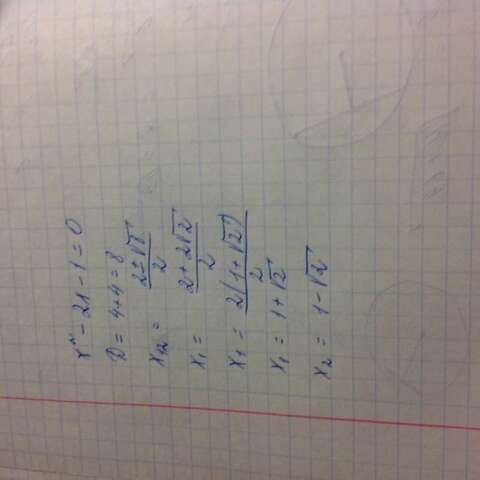 x² - 2x - 1 = 0
D = 4+4 = 8
x₁,₂ = (2±√8)/2
x₁ = (2+2√2)/2
x₁ = 2(1+√2)/2
x₁ = 1+√2
x₂ = 1-√2